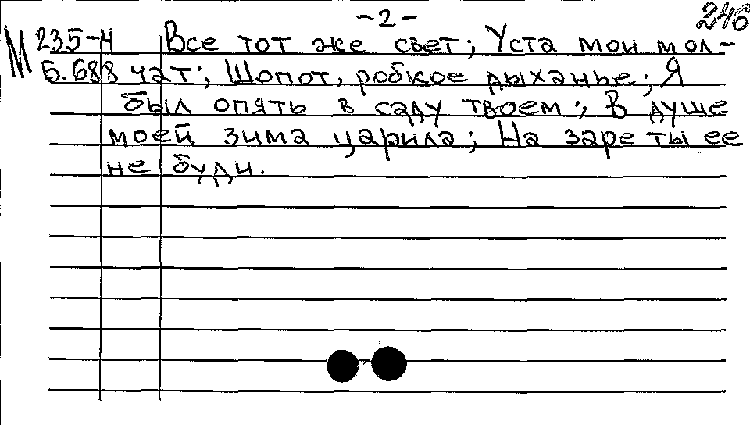 -2-
246
М 235-4 Все тот же свет; Уста мои мол-
Б.688 чат; Шопот, робкое дыханье; Я
был опять в саду твоем; В душе
моей зима царила; На заре ты ее
не буди.